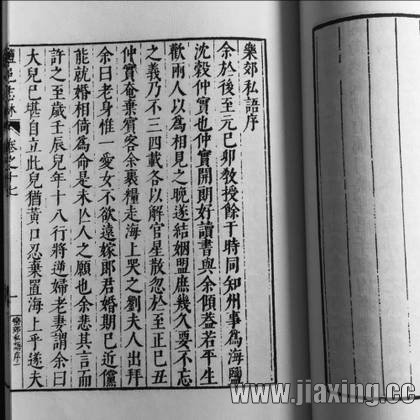 樂郊私語序
余於後至元己卯教授餘干時同知州事為海鹽
沈穀仲實也仲實開朗好讀書與余傾蓋若平生
歡兩人以為相見之晚遂結姻盟庶幾久要不忘
之義乃不三四載各以解官星散忽於至正己丑
仲實奄棄賓客余裹糧走海上哭之劉夫人出拜
余曰老身惟一愛女不欲遠嫁郎君婚期已近儻
能就婚相倚為命是未亡人之願也余悲其言而
許之至歲壬辰兒年十八行將逆婦老妻謂余曰
大兒已堪自立此兒猶黃口忍棄置海上乎遂夫
鹽邑志林 卷之十七 一
樂郊私語序一
www.jiaxing.cc